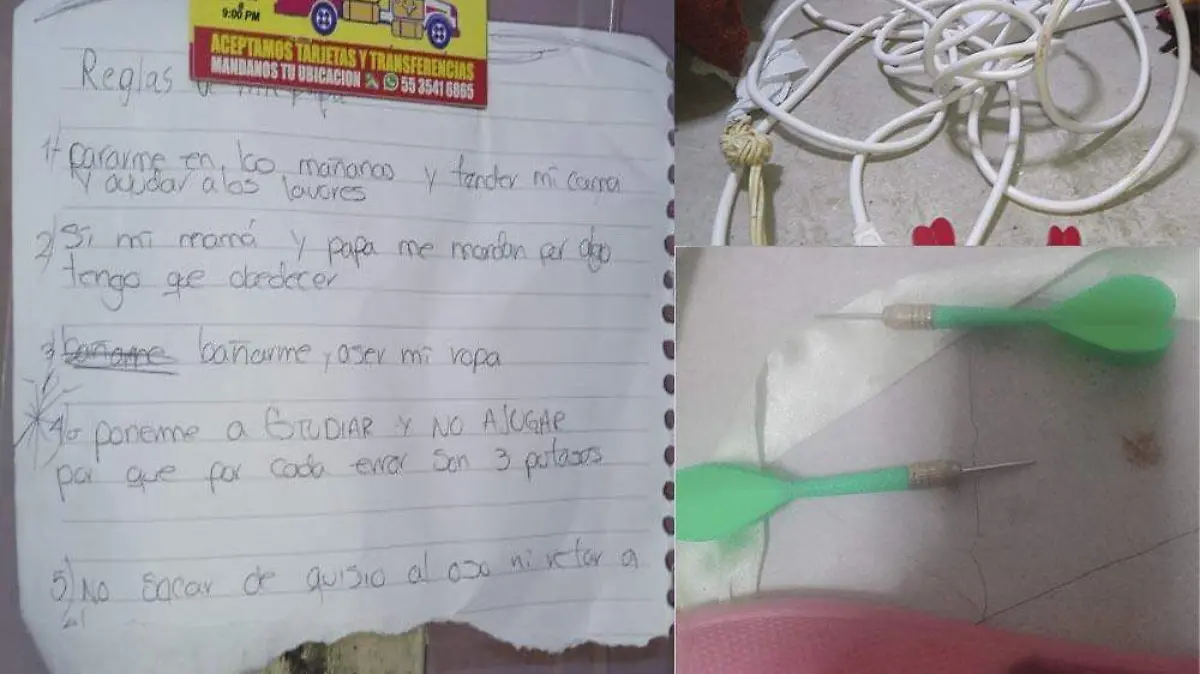 9:00 PM
ACEPTAMOS TARJETAS Y TRANSFERENCIAS
MANDANOS TU UBICACION 55 3541 6865
Reglas de mi papa
1+ pararme en las mañanas y tender mi cama
y ayudar a los lavores
2) Si mi mamá y papa me mandan por algo
tengo que obedecer
3) bañarme bañarme, oser mi ropa
4) ponerme a ESTUDIAR Y NO AJUGAR
por que por cada error son 3 putasos
5) No sacar de quisio al oso ni retar a
el